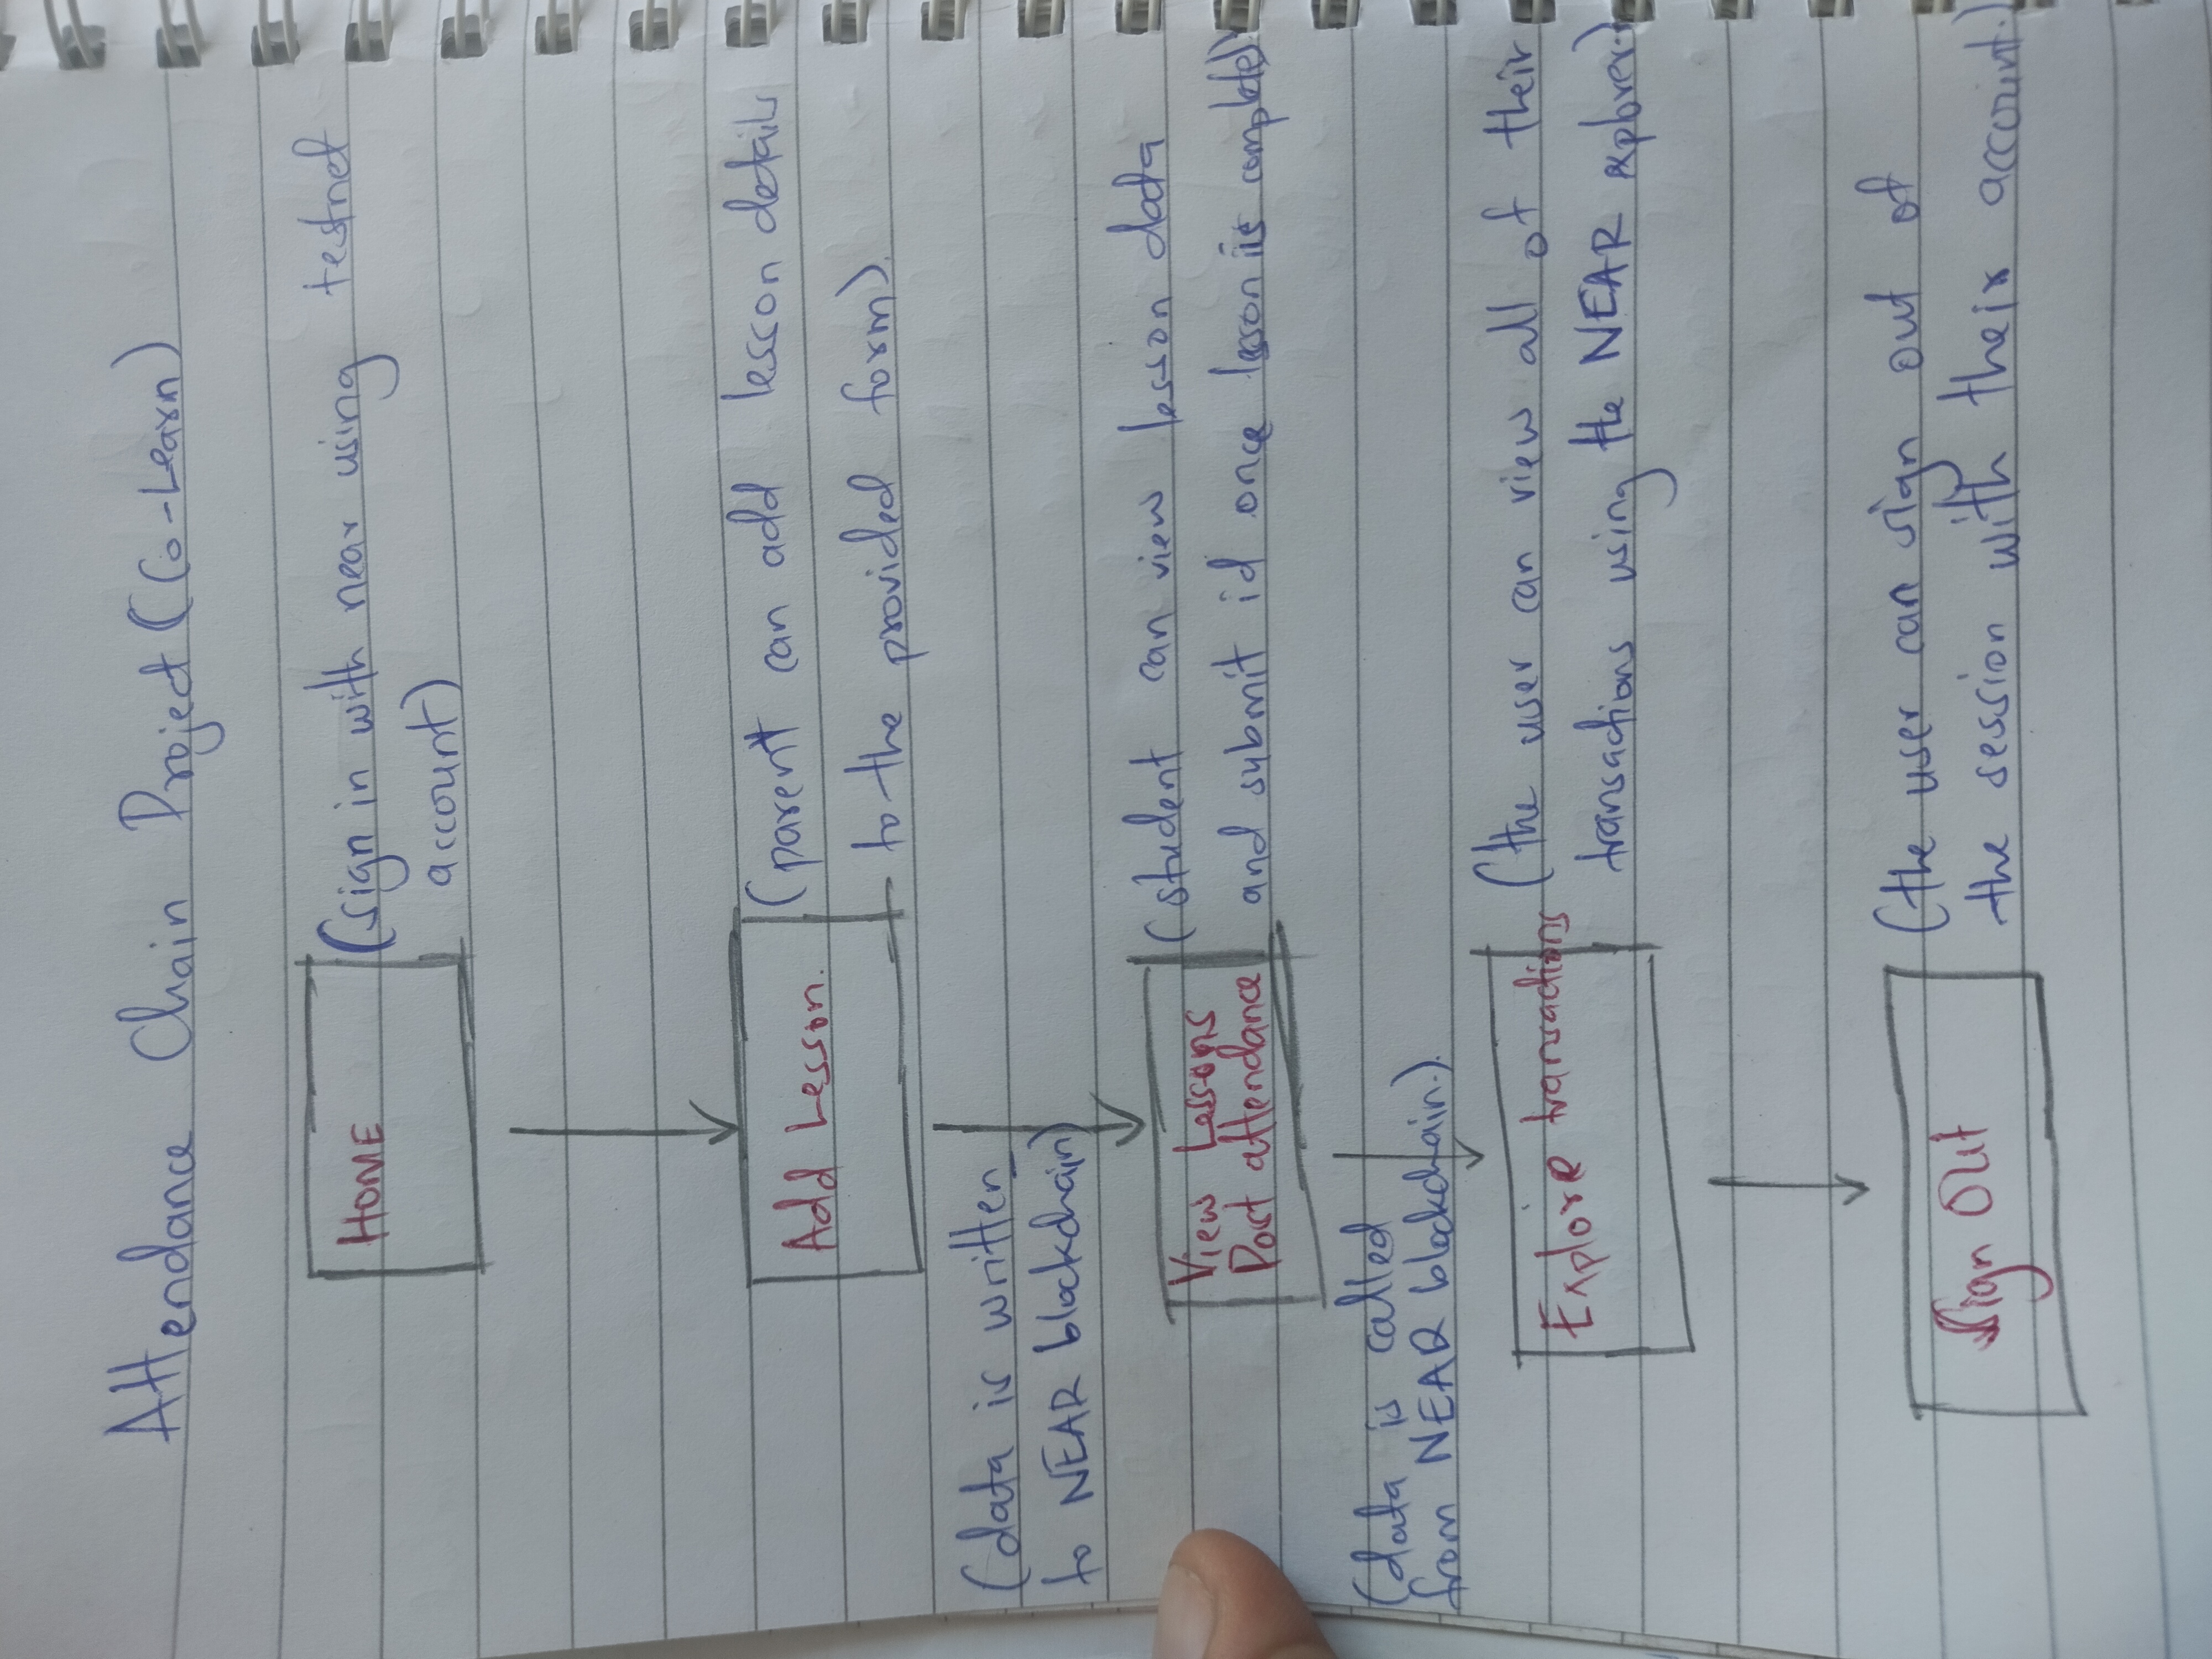 Attendance Chain Project (Co-Learn)
HOME
(sign in with near using testnet
account)
Add Lesson.
(parent can add lesson details
to the provided form).
(data is written
to NEAR blockchain)
View Lessons
Post attendance
(student can view lesson data
and submit id once lesson is complete)
(data is called
from NEAR blockchain.).
Explore transactions
(the user can view all of their
transactions using the NEAR explorer.)
Sign Out
(the user can sign out of
the session with their account.)